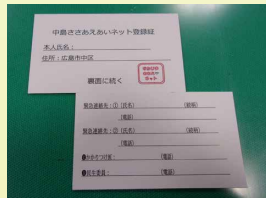 中島ささえあいネット登録証
本人氏名：
住所：広島市中区
裏面に続く
緊急連絡先：① (氏名) (続柄)
(電話)
緊急連絡先：② (氏名) (続柄)
(電話)
●かかりつけ医： (電話)
●民生委員： (電話)